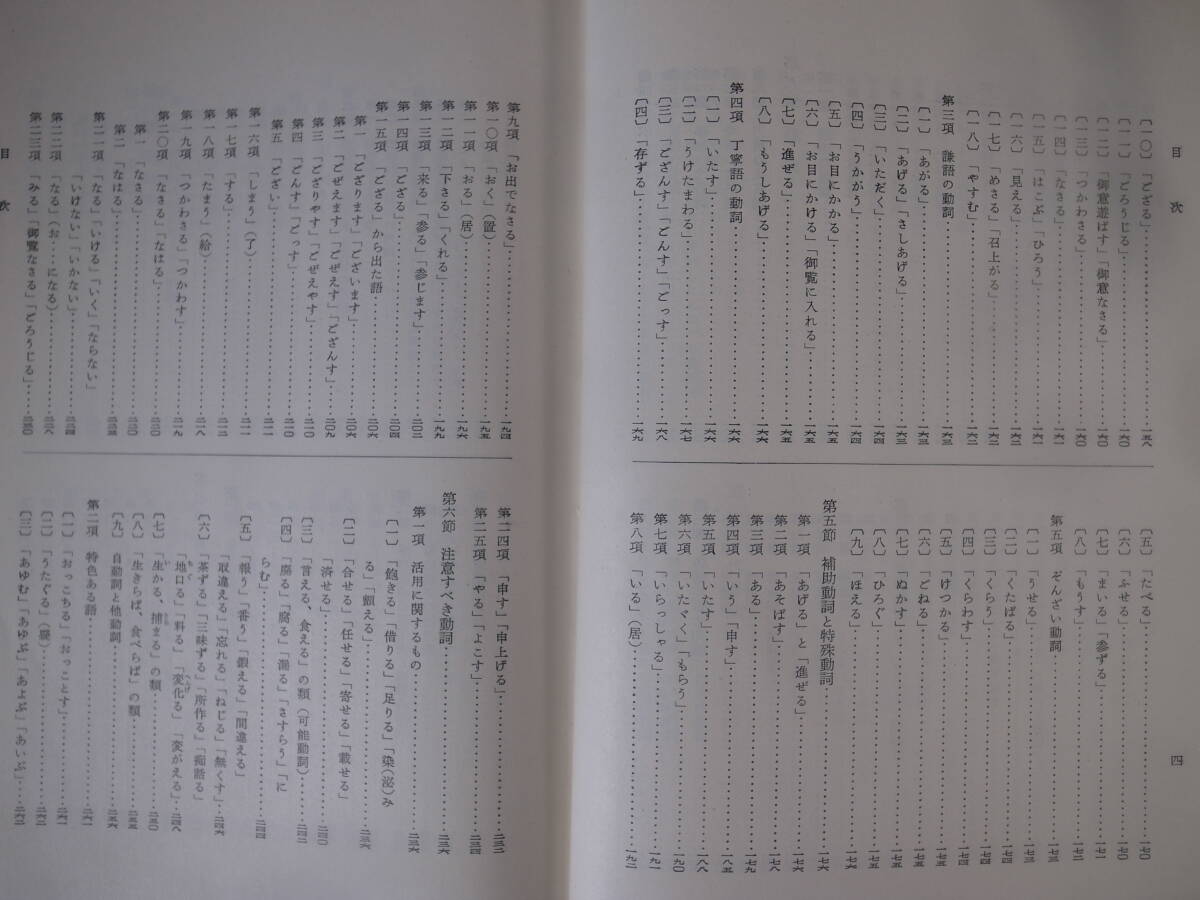 目次
四
〔一〇〕「ござる」……一五八
〔一一〕「ごろうじる」……一六〇
〔一二〕「御意遊ばす」「御意なさる」……一六〇
〔一三〕「つかわさる」……一六〇
〔一四〕「なさる」……一六一
〔一五〕「はこぶ」「ひろう」……一六一
〔一六〕「見える」……一六二
〔一七〕「めさる」「召上がる」……一六二
〔一八〕「やすむ」……一六二
第三項 謙語の動詞
〔一〕「あがる」……一六三
〔二〕「あげる」「さしあげる」……一六三
〔三〕「いただく」……一六四
〔四〕「うかがう」……一六四
〔五〕「お目にかかる」……一六五
〔六〕「お目にかける」「御覧に入れる」……一六五
〔七〕「進ぜる」……一六五
〔八〕「もうしあげる」……一六六
第四項 丁寧語の動詞
〔一〕「いたす」……一六六
〔二〕「うけたまわる」……一六七
〔三〕「ござんす」「ごんす」「ごっす」……一六八
〔四〕「存ずる」……一六九
〔五〕「たべる」……一七〇
〔六〕「ふせる」……一七〇
〔七〕「まいる」「参ずる」……一七一
〔八〕「もうす」……一七二
第五項 ぞんざい動詞
〔一〕「うせる」……一七二
〔二〕「くたばる」……一七三
〔三〕「くらう」……一七四
〔四〕「くらわす」……一七四
〔五〕「けつかる」……一七五
〔六〕「ごねる」……一七五
〔七〕「ぬかす」……一七五
〔八〕「ひろぐ」……一七五
〔九〕「ほえる」……一七六
第五節 補助動詞と特殊動詞……一七六
第一項 「あげる」と「進ぜる」……一七六
第二項 「あそばす」……一七八
第三項 「ある」……一七九
第四項 「いう」「申す」……一八五
第五項 「いたす」……一八八
第六項 「いたゞく」「もらう」……一九〇
第七項 「いらっしゃる」……一九一
第八項 「いる」(居)……一九二
第九項 「お出でなさる」……一九四
第一〇項 「おく」(置)……一九五
第一一項 「おる」(居)……一九六
第一二項 「下さる」「くれる」……一九九
第一三項 「来る」「参る」「参じます」……二〇二
第一四項 「ござる」……二〇四
第一五項 「ござる」から出た語……二〇六
第一 「ござります」「ございます」……二〇六
第二 「ごぜえます」「ごぜえす」「ござんす」……二〇九
第三 「ござりやす」「ごぜえやす」……二一〇
第四 「ごんす」「ごっす」……二一〇
第五 「ござい」……二一一
第一六項 「しまう」(了)……二一一
第一七項 「する」……二一二
第一八項 「たまう」(給)……二一八
第一九項 「つかわさる」「つかわす」……二一九
第二〇項 「なさる」「なはる」……二二〇
第一 「なさる」……二二〇
第二 「なはる」……二二五
第二一項 「なる」「いける」「いく」「ならない」
「いけない」「いかない」……二二四
第二二項 「なる」(お…になる)……二二八
第二三項 「みる」「御覧なさる」「ごろうじる」……二三〇
目次
第二四項 「申す」「申上げる」……二三二
第二五項 「やる」「よこす」……二三四
第六節 注意すべき動詞……二三六
第一項 活用に関するもの……二三六
〔一〕「飽きる」「借りる」「足りる」「染(泌)み
る」「顫える」……二三六
〔二〕「合せる」「任せる」「寄せる」「載せる」
「済せる」……二四〇
〔三〕「言える、食える」の類(可能動詞)……二四二
〔四〕「腐る」「腐る」「濁る」「さすらう」「に
らむ」……二四四
〔五〕「報う」「番う」「鍛える」「間違える」
「取違える」「忘れる」「ねじる」「無くす」……二四六
〔六〕「茶ずる」「三味ずる」「所作る」「痴話る」
「地口る」「料る」「変化る」「変がえる」……二四八
〔七〕「生かる、捕まる」の類……二五〇
〔八〕「生きらば、食べらば」の類……二五五
〔九〕自動詞と他動詞……二五六
第二項 特色ある語……二六一
〔一〕「おっこちる」「おっことす」……二六一
〔二〕「うたぐる」……二六二
〔三〕「あゆむ」「あゆぶ」「あよぶ」「あいぶ」……二六二